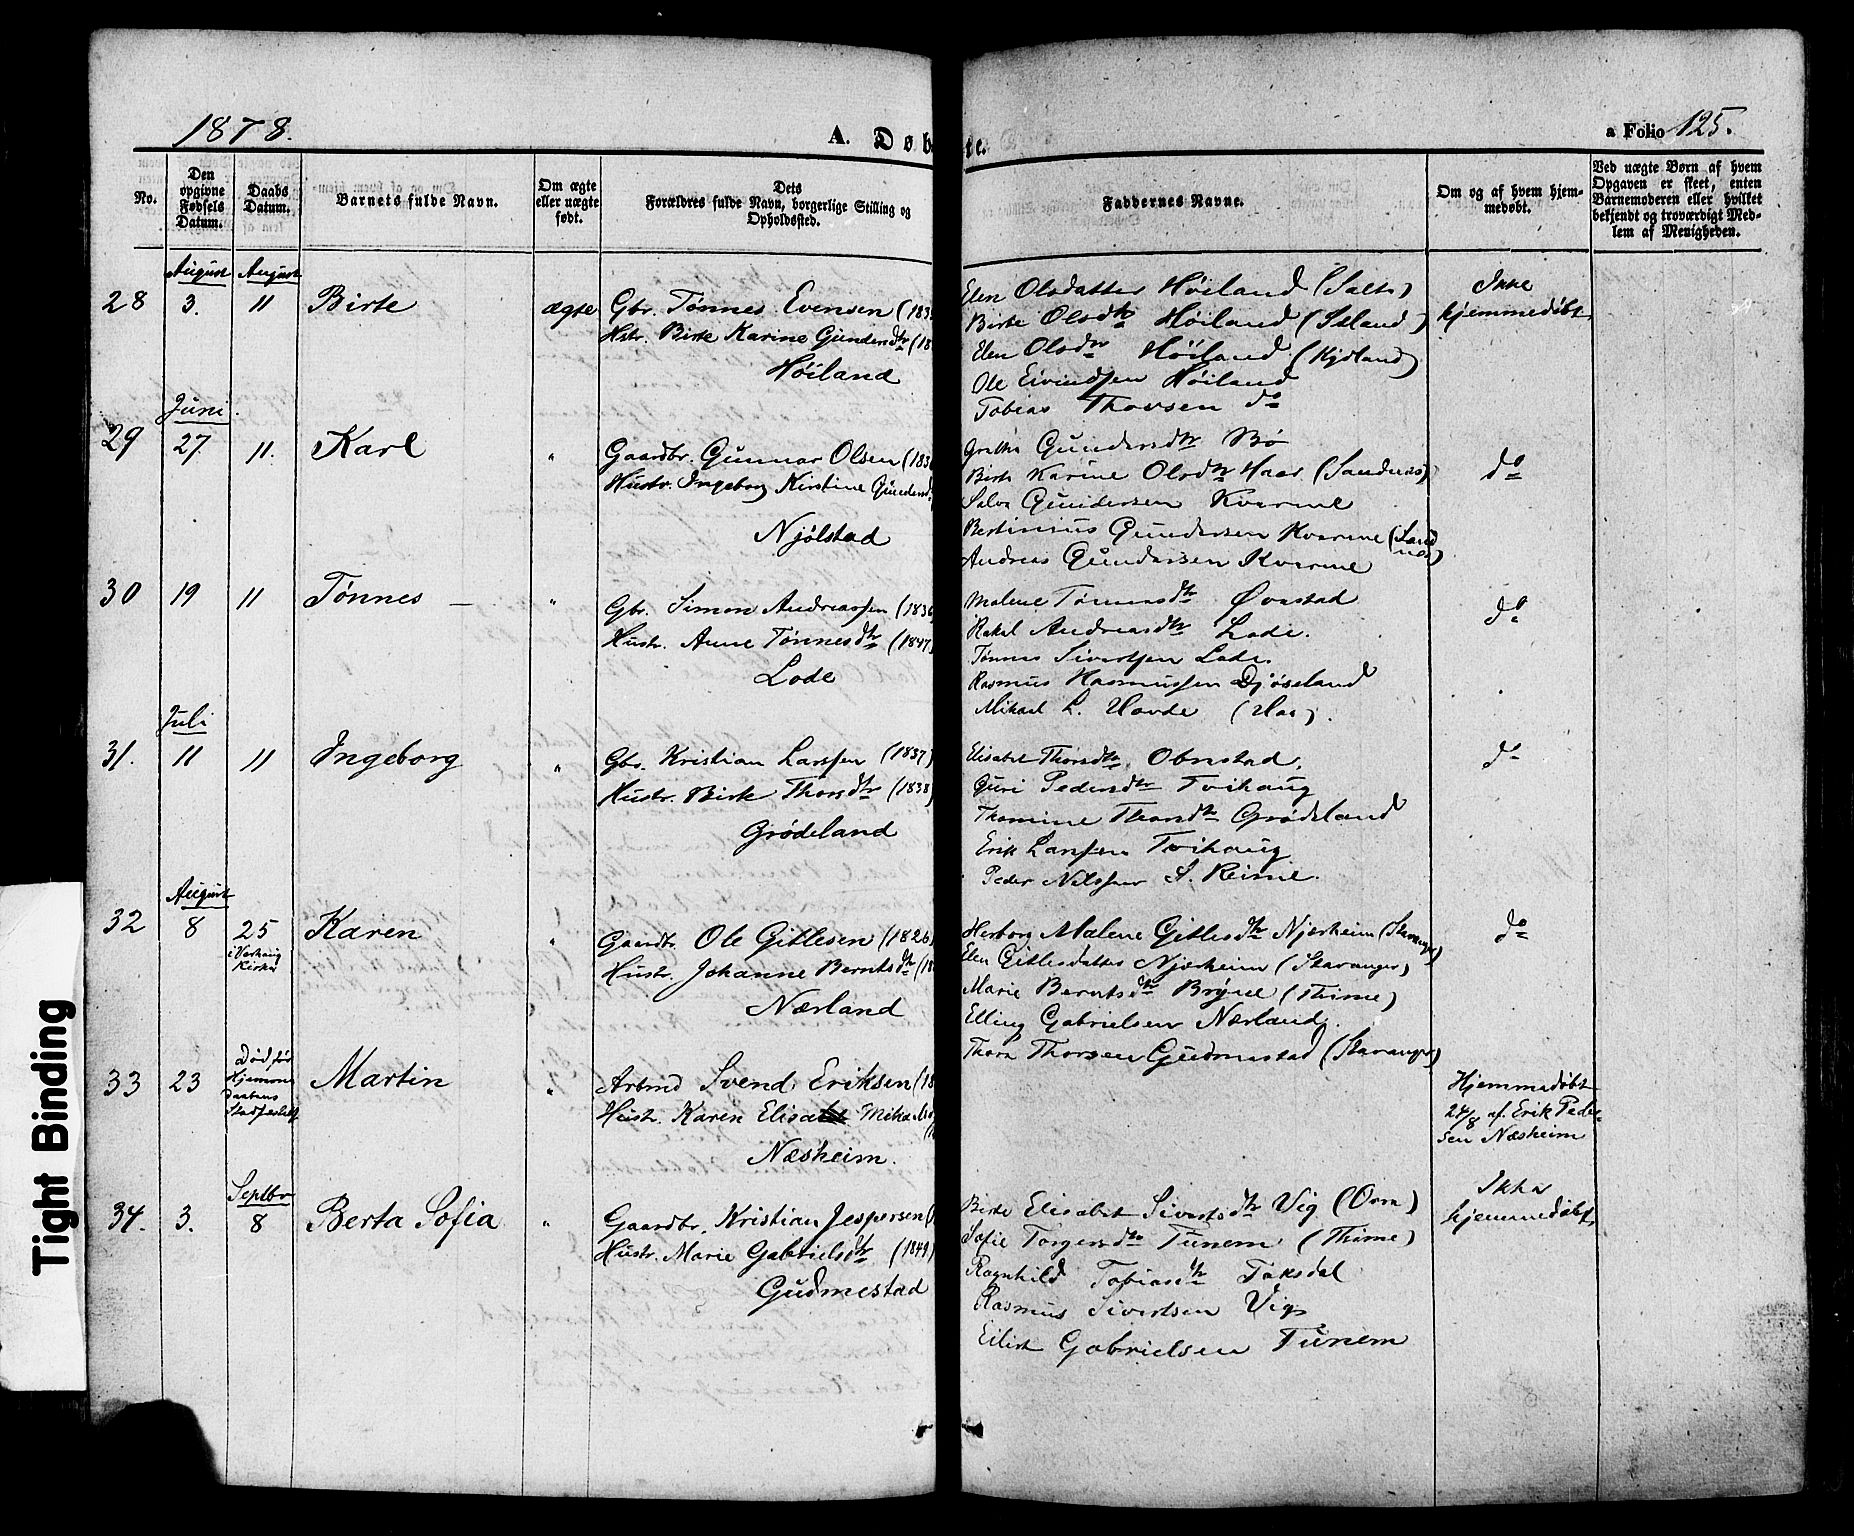 1878.
A. Døb
te.
a Folio 125.
No.
Den opgivne Fødsels Datum.
Daabs Datum.
Barnets fulde Navn.
Om ægte eller uægte født.
Dets Forældres fulde Navn, borgerlige Stilling og Opholdssted.
Faddernes Navne.
Om og af hvem hjemmedøbt.
Ved uægte Børn af hvem Opgaven er skeet, enten Barnemoderen eller hvilket bekjendt og troværdigt Medlem af Menigheden.
August August
28 3. 11 Birte ægte Gbr. Tønnes Evensen (183
Hstr. Birte Karine Gundersdtr (18
Høiland
Elen Olsdatter Høiland (Salte)
Birte Olsdtr Høiland (Island)
Elen Olsdtr Høiland (Kydland)
Ole Eivindsen Høiland
Tobias Thorsen do
Ikke
hjemmedøbt.
Juni.
29 27. 11. Karl " Gaardbr. Gunnar Olsen (183
Hustr. Ingeborg Kirstine Gundersd
Njølstad
Grethe Gundersdtr Bø
Birte Karine Olsdtr Haar (Sandnes)
Salve Gundersen Kverme
Bertinius Gundersen Kverme (Sand
nes)
Andreas Gundersen Kverme
do
30 19 11 Tønnes — " Gbr. Simon Andreassen (1836
Hustr. Anne Tønnesdtr (1847)
Lode
Malene Tønnesdtr Ovestad
Rakel Andreasdtr Lode.
Tønnes Sivertsen Lode.
Rasmus Rasmussen Djøseland
Mikael L. Hovde (Haa).
do
Juli
31. 11 11 Ingeborg " Gbr. Kristian Larssen (1837)
Hustr. Birte Thorsdtr (1838)
Grødeland
Elisabet Thorsdtr Obrestad.
Guri Pedersdtr Tvihaug
Thomine Thorsdtr Grødeland
Erik Larssen Tvihaug
Peder Nilssen S. Reime.
do
August
32 8 25 Karen " Gaardbr. Ole Gitlesen (1826)
i Varhaug
Kirke
Hustr. Johanne Berntsdtr (18
Nærland
Herborg Malene Gitlesdtr Njærheim (Stavanger)
Elen Gitlesdatter Njærheim (Stavanger)
Marie Berntsdtr Bryne (Thime)
Elling Gabrielsen Nærland.
Thore Thorsen Gudmestad (Stavanger)
do
33 23 Død før
Hjemme
daabens
Stadfæstelse
Martin " Arbmd Svend Eriksen (18
Hustr. Karen Elisabet Mikaelsd
Næsheim.
Hjemmedøbt
24/8 af Erik Peder-
sen Næsheim
Septbr
34. 3. 8 Berta Sofia " Gaardbr. Kristian Jespersen (
Hustr. Marie Gabrielsdtr (1849)
Gudmestad
Birte Elisabet Sivertsdtr Vig (Orre)
Sofie Torgersdtr Tunem (Thime)
Ragnhild Tobiasdtr Taksdal
Rasmus Sivertsen Vig
Eilert Gabrielsen Tunem
Ikke
hjemmedøbt.
Tight Binding